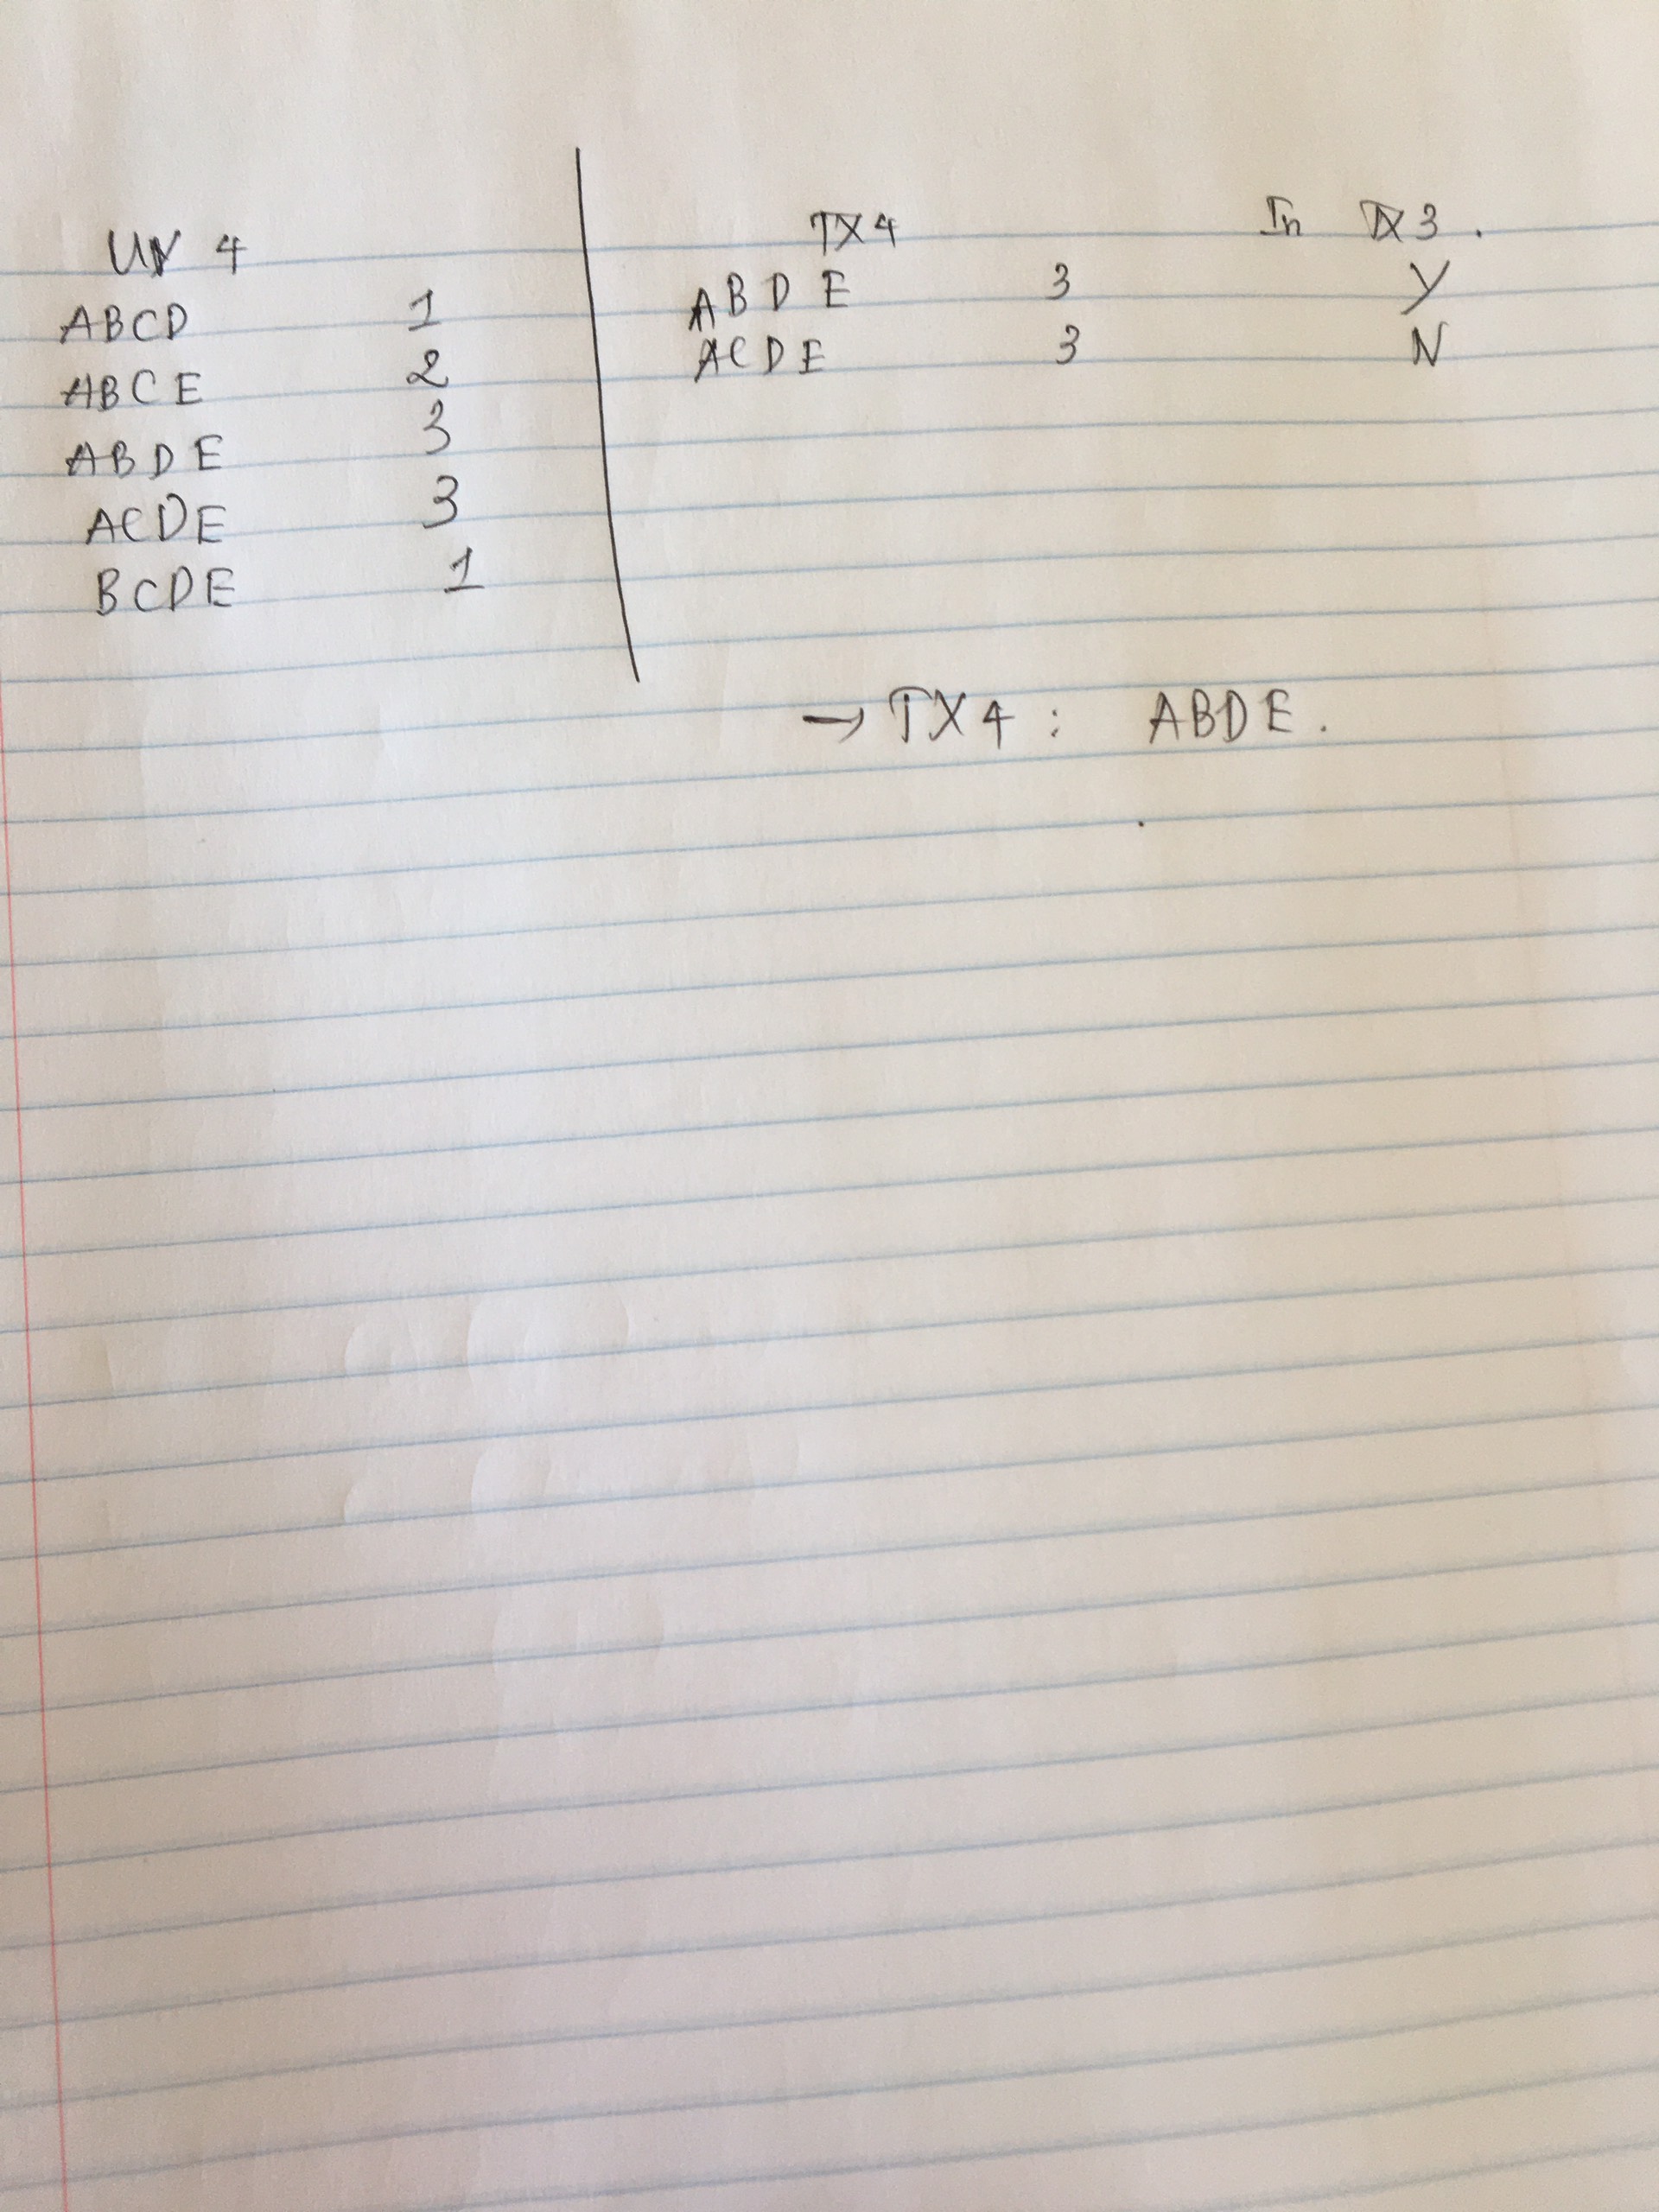 UN 4
ABCD 1
ABCE 2
ABDE 3
ACDE 3
BCDE 1
TX4 In TX3.
ABDE 3 Y
ACDE 3 N
→ TX4: ABDE.